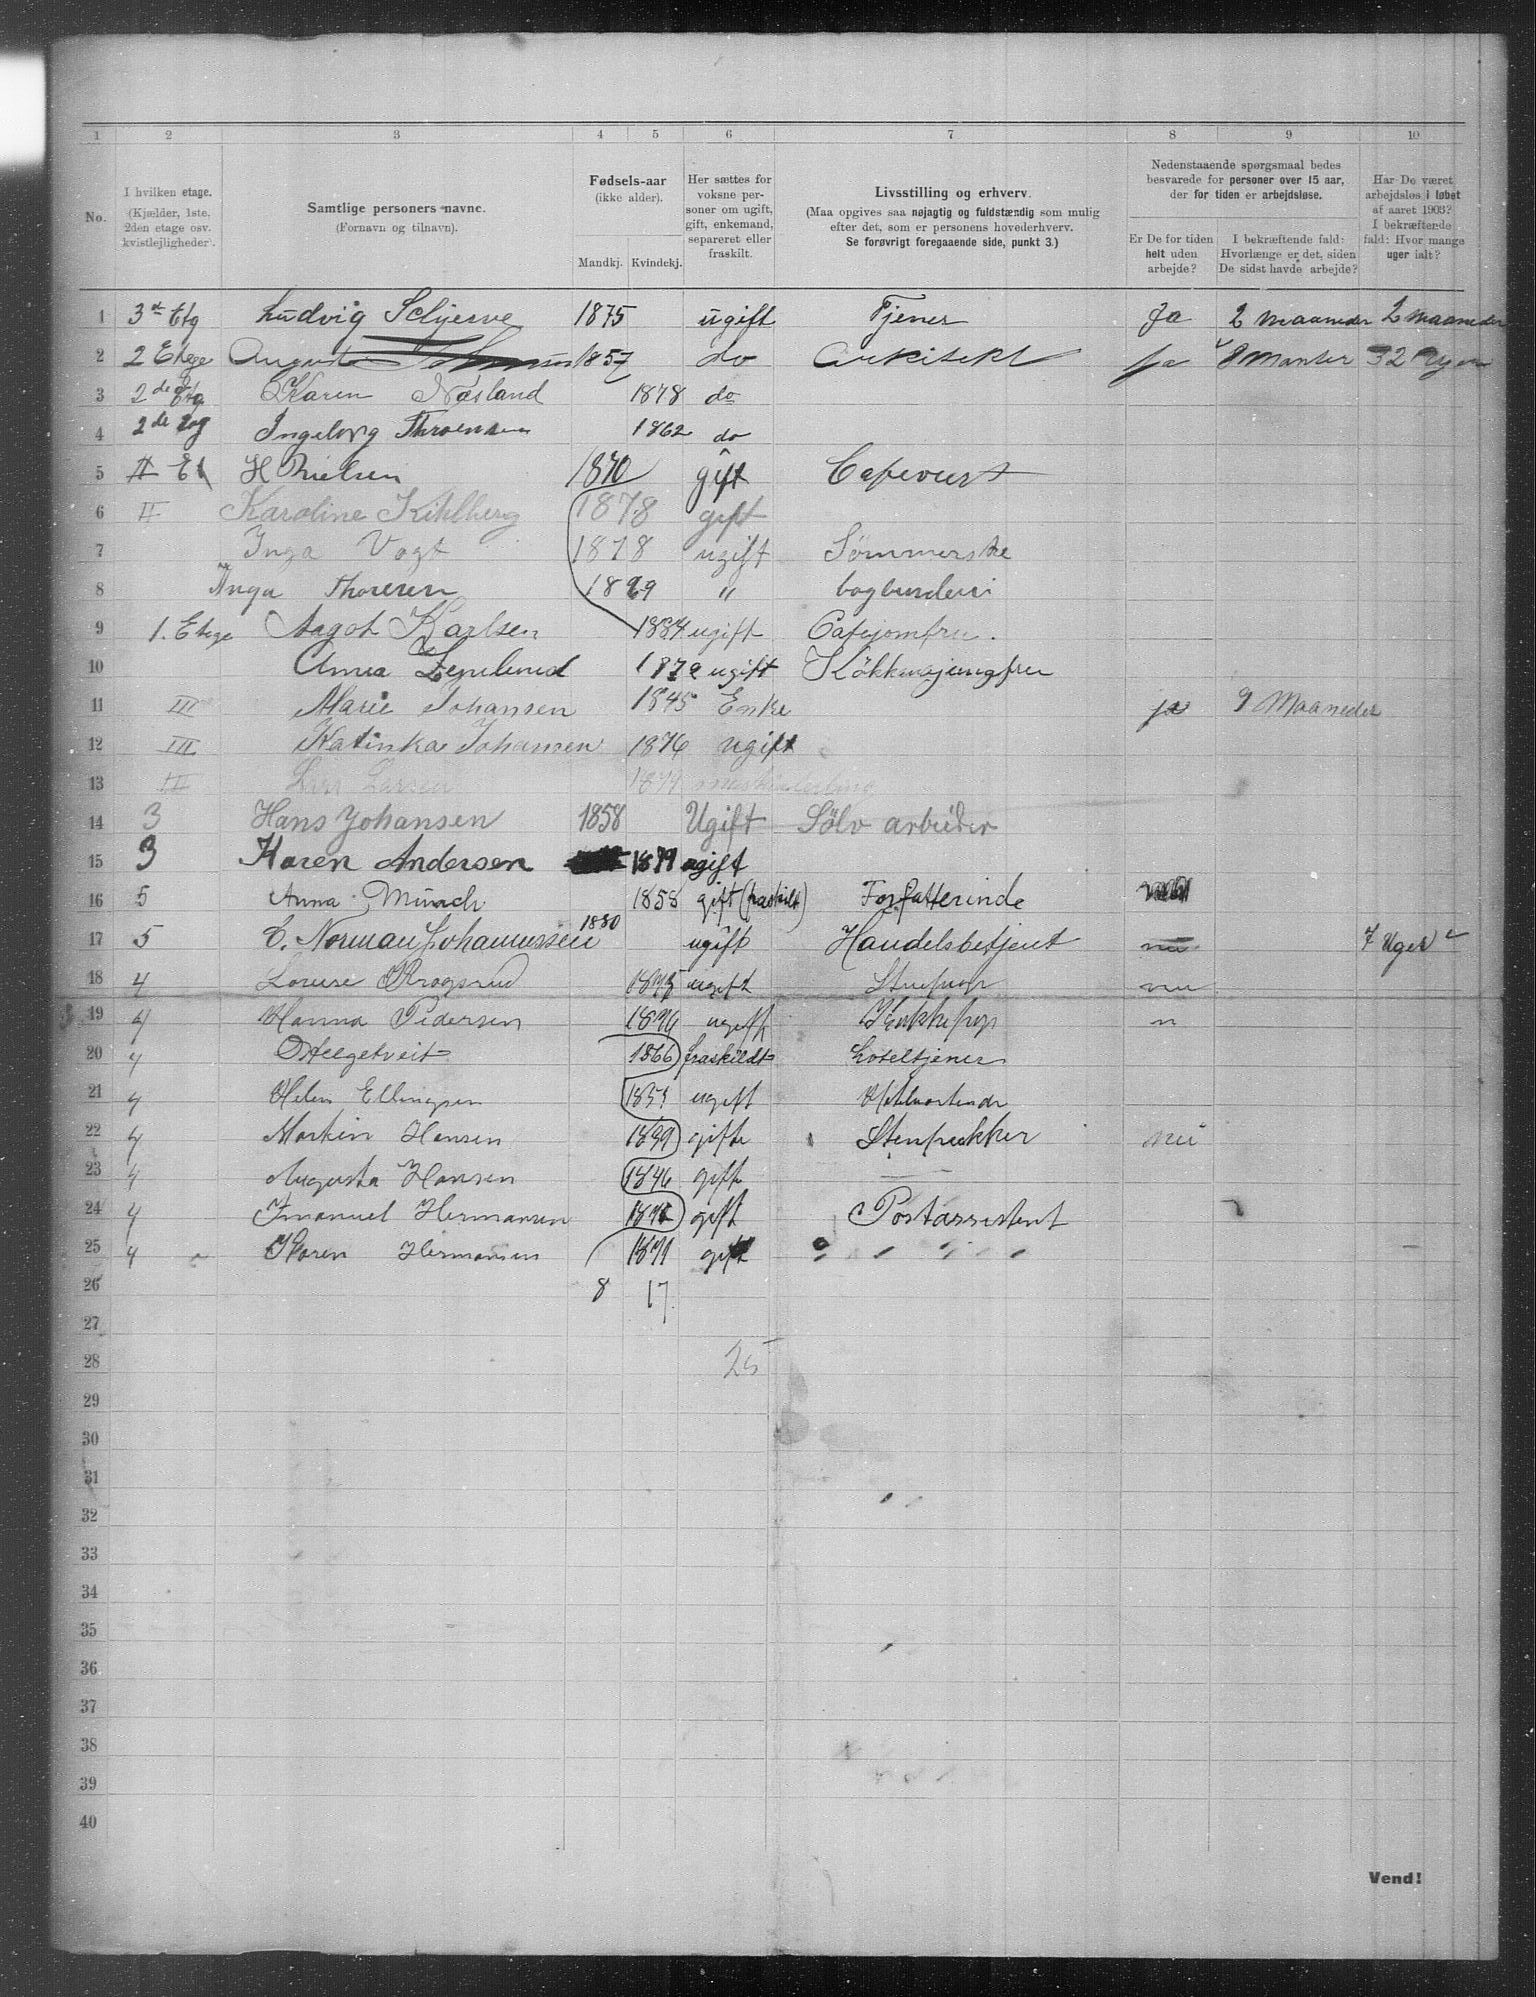 1 2 3 4 5 6 7 8 9 10
No.
I hvilken etage.
(Kjælder, 1ste, 2den etage osv. kvistlejligheder).
Samtlige personers navne.
(Fornavn og tilnavn).
Fødsels-aar
(ikke alder).
Mandkj. Kvindekj.
Her sættes for voksne personer om ugift, gift, enkemand, separeret eller fraskilt.
Livsstilling og erhverv.
(Maa opgives saa nøjagtig og fuldstændig som mulig efter det, som er personens hovederhverv.
Se forøvrigt foregaaende side, punkt 3.)
Nedenstaaende spørgsmaal bedes besvarede for personer over 15 aar, der for tiden er arbejdsløse.
Er De for tiden helt uden arbejde?
I bekræftende fald: Hvorlænge er det, siden De sidst havde arbejde?
Har De været arbejdsløs i løbet af aaret 1903? I bekræftende fald: Hvor mange uger ialt?
1 3die Etg Ludvig Schjerve 1875 ugift Tjener Ja 2 maaneder 2 maaneder
2 2 Etage August 1857 do Arkitekt ja 8 Manter 32 Ugen
3 2de Etg Karen Næsland 1878 do
4 2de Etg Ingeborg 1862 do
5 II Et H Nielsen 1870 gift Cafevert
6 II Karoline Kihlberg 1878 gift
7 Inga Vogt 1878 ugift Sömmerske
8 Inga Thoresen 1899 " bogbinderi
9 1. Etage Aagot Karlsen 1884 ugift Cafejomfru.
10 Anna 1872 ugift Kökkenjungfru
11 III Marie Johansen 1845 Enke ja 9 Maaneder
12 III Katinka Johansen 1876 ugift
13 III Larsen
14 3 Hans Johansen 1858 Ugift Sölv arbeider
15 3 Karen Andersen 1879 ugift
16 5 Anna Münch 1858 gift (fraskilt) Forfatterinde
17 5 C. Norman Johannessen 1880 ugift Handelsbetjent nei 7 Uger
18 4 Louise Krogsrud 1875 ugift Stuepige nei
19 4 Hanna Pedersen 1876 ugift Kokkepige
20 4 O Helgetveit 1866 fraskildt hoteltjener
21 4 Helen Ellingsen 1851 ugift
22 4 Martin Hansen 1839 gift Stenhukker nei
23 4 Augusta Hansen 1846 gift
24 4 Imanuel Hermansen gift Postassistent
25 4 Karen Hermansen 1871 gift " " " "
26 8 17
27
28 25
29
30
31
32
33
34
35
36
37
38
39
40
Vend!